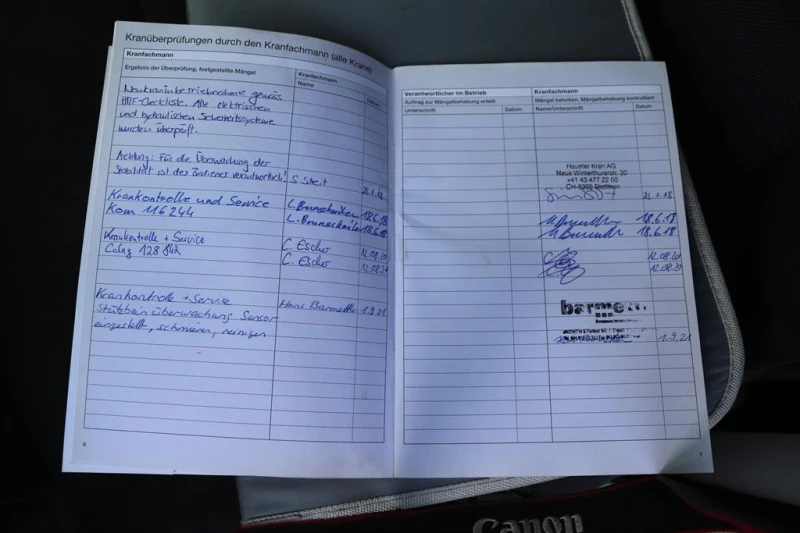 Kranüberprüfungen durch den Kranfachmann (alle Krane)
Kranfachmann
Ergebnis der Überprüfung, festgestellte Mängel
Kranfachmann
Name
Datum
gemäss
HIF-Checkliste. Alle elektrischen
und hydraulischen Sicherheitssysteme
wurden überprüft.
Achtung: Für die Überwachung der
Stabilität ist der Bediener verantwortlich!
S. Steit
25.1.18
Krankontrolle und Service
L. Brunschwiler 18.6.18
Kom 116244
L. Brunschwiler 18.6.18
Krankontrolle + Service
C. Escher
12.08.20
C. Escher
12.08.20
Krankontrolle + Service
Hans Barmettler
1.9.21
Stützbeinüberwachung Sensor
eingestellt, schmieren, reinigen
6
Verantwortlicher im Betrieb
Auftrag zur Mängelbehebung erteilt
Unterschrift
Datum
Kranfachmann
Mängel behoben, Mängelbehebung kontrolliert
Name/Unterschrift
Datum
Kran AG
Neue Winterthurerstr. 30
+41 43 477 22 00
CH-8305 Dietlikon
25.1.18
18.6.18
18.6.18
12.08.20
12.08.20
1.9.21
7
Canon